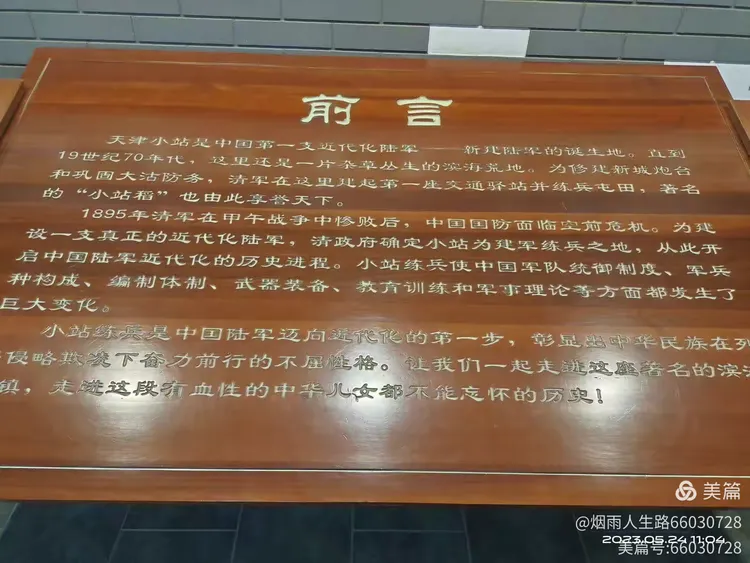 前言
天津小站是中国第一支近代化陆军——新建陆军的诞生地。直到
19世纪70年代，这里还是一片杂草丛生的滨海荒地。为修建新城炮台
和巩固大沽防务，清军在这里建起第一座交通驿站并练兵屯田，著名
的“小站稻”也由此享誉天下。
1895年清军在甲午战争中惨败后，中国国防面临空前危机。为建
设一支真正的近代化陆军，清政府确定小站为建军练兵之地，从此开
启中国陆军近代化的历史进程。小站练兵使中国军队统御制度、军兵
种构成、编制体制、武器装备、教育训练和军事理论等方面都发生了
巨大变化。
小站练兵是中国陆军迈向近代化的第一步，彰显出中华民族在列
侵略欺凌下奋力前行的不屈性格。让我们一起走进这座著名的滨海
镇，走进这段有血性的中华儿女都不能忘怀的历史！
美篇
@烟雨人生路66030728
2023.05.24 11:04
美篇号:66030728